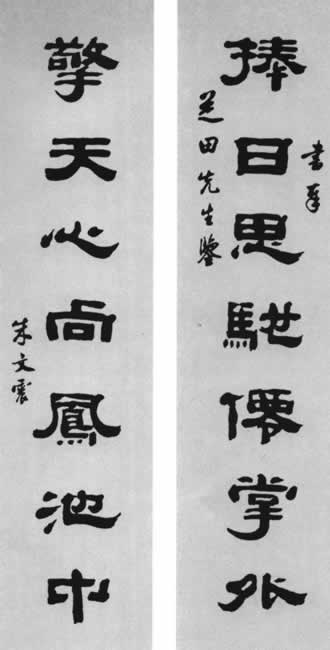 書奉
捧日思馳僊掌外
芝田先生鑒
擎天心向鳳池中
朱文震